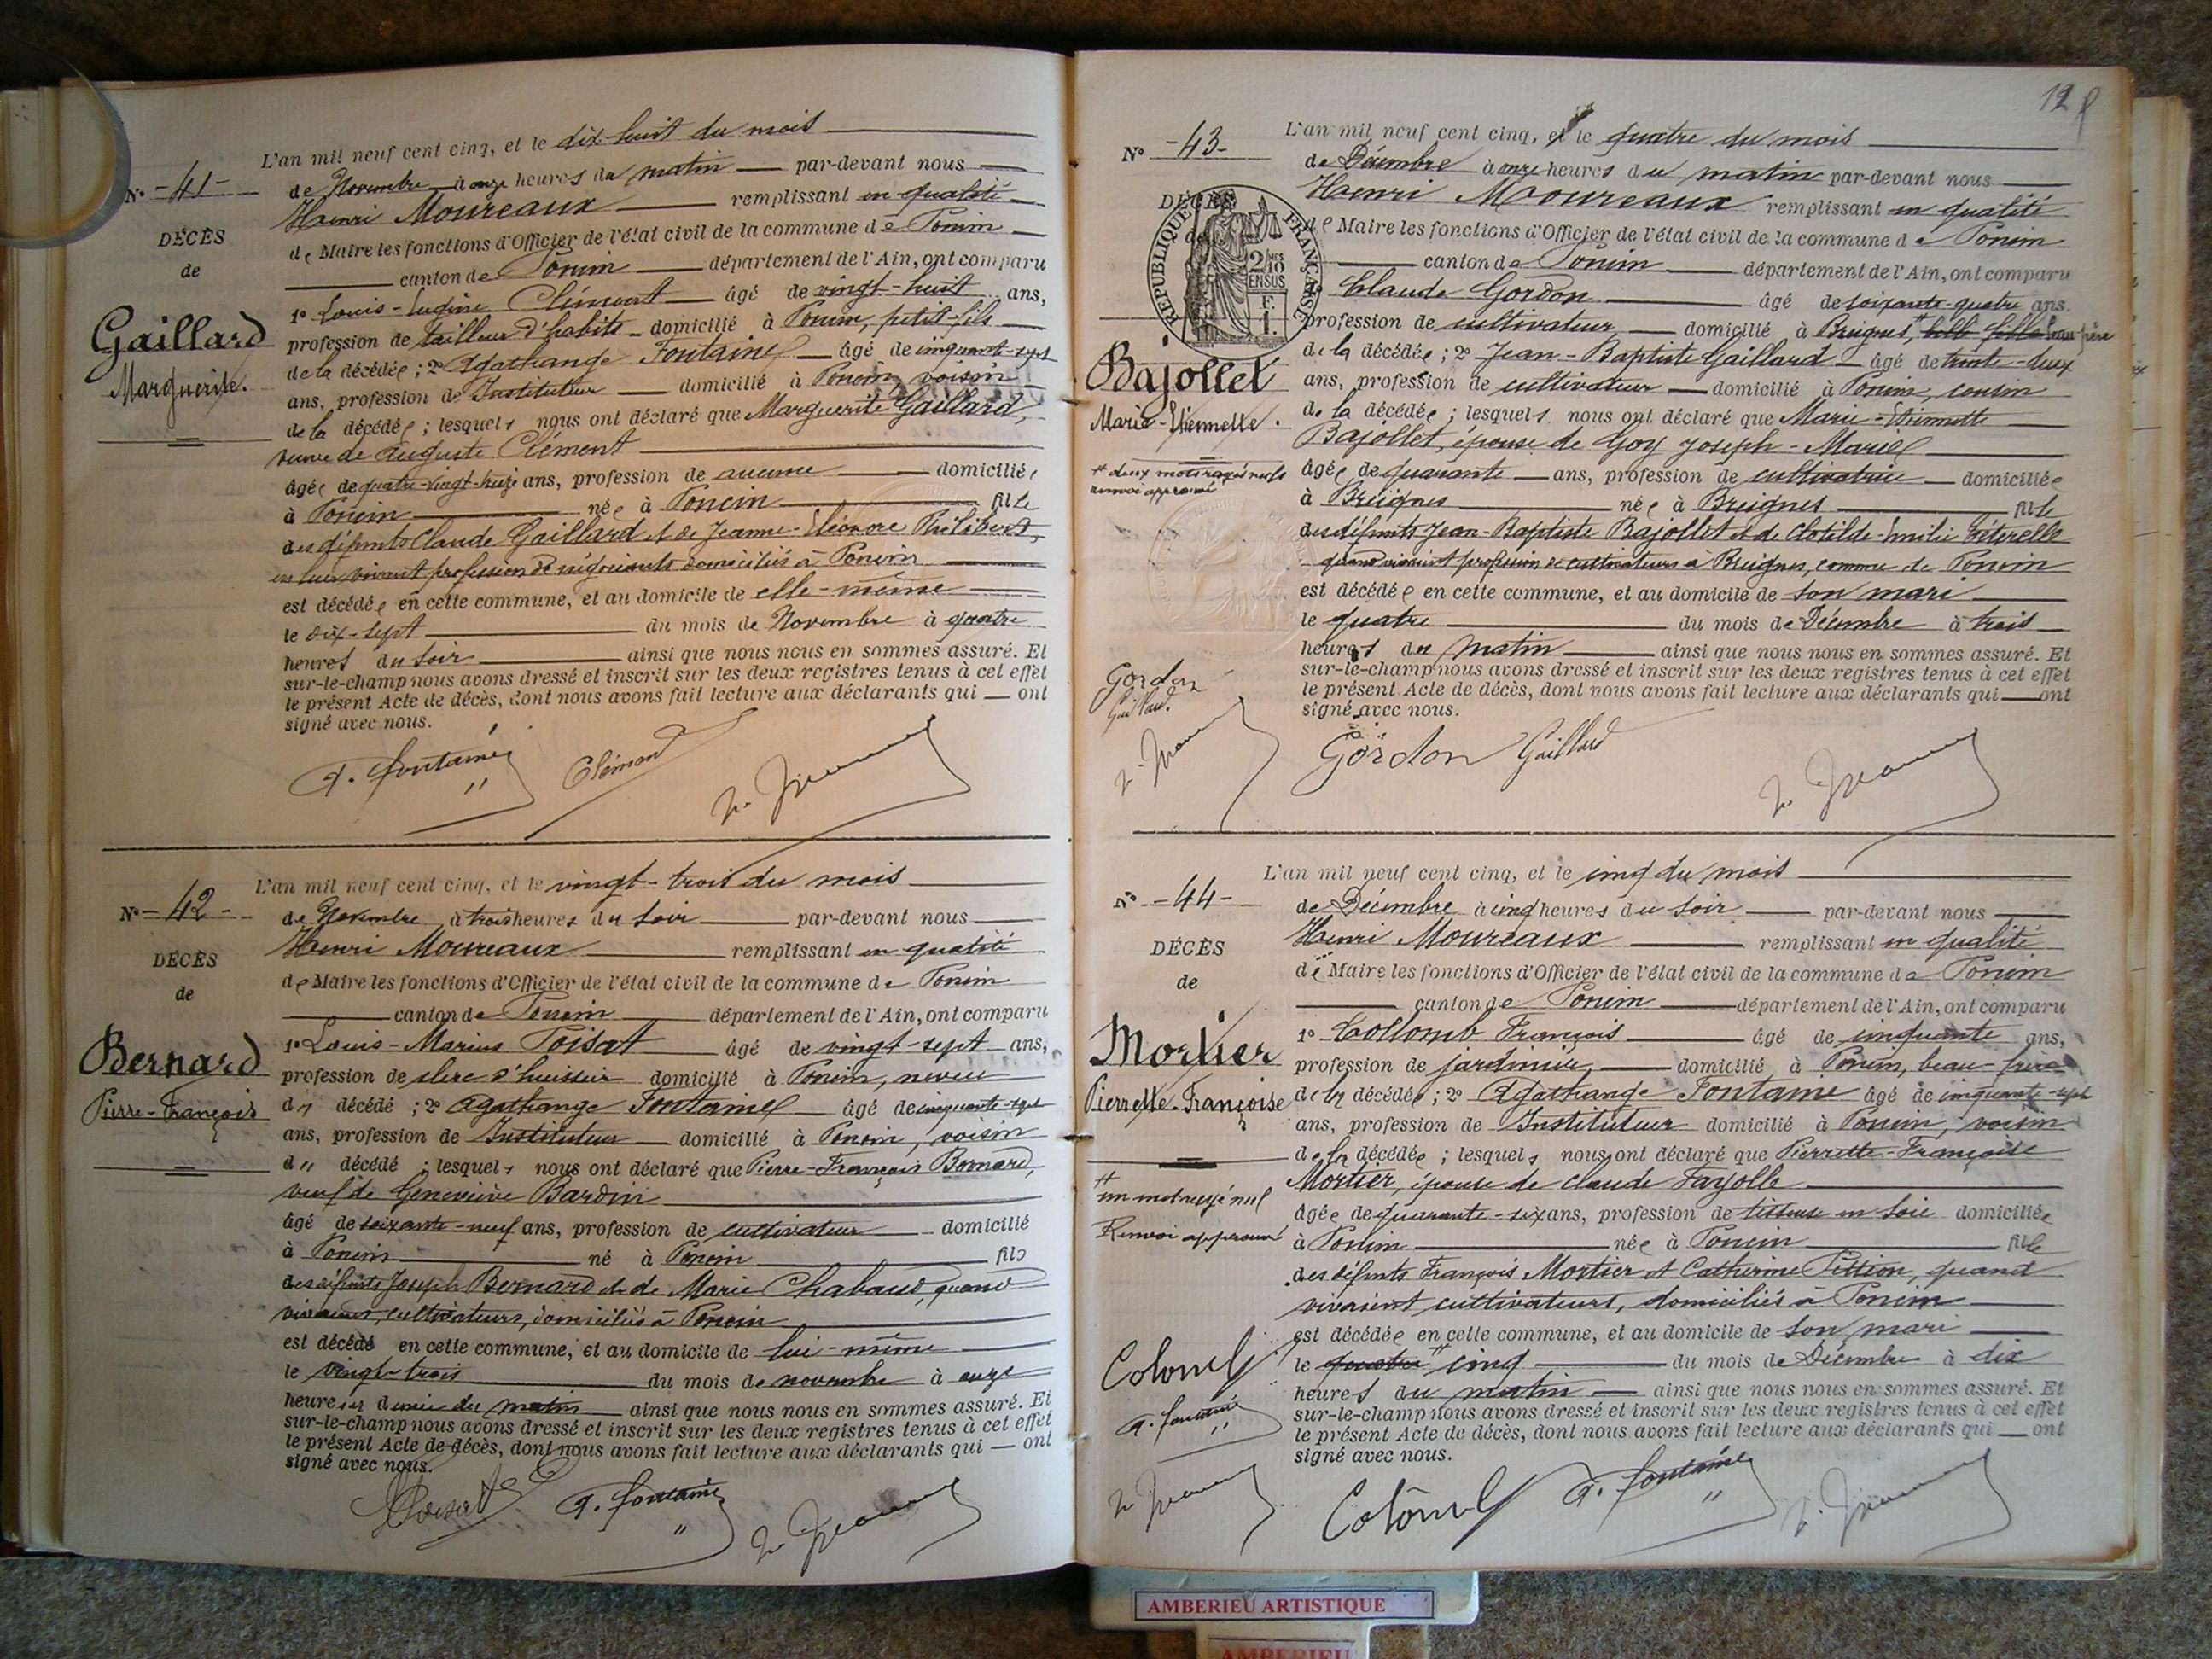 L'an mil neuf cent cinq, et le dix-huit du mois
N° -41-
de Novembre à onze heures du matin par-devant nous
Henri Moureaux remplissant en qualité
DÉCÈS
de Maire les fonctions d'Officier de l'état civil de la commune de Poncin
de
canton de Poncin département de l'Ain, ont comparu
1° Louis-Eugène Clément âgé de vingt-huit ans,
Gaillard
profession de tailleur d'habits domicilié à Poncin, petit-fils
de la décédée ; 2° Agathange Fontaine âgé de cinquante-sept
Marguerite.
ans, profession de Instituteur domicilié à Poncin, voisin
de la décédée ; lesquels nous ont déclaré que Marguerite Gaillard,
veuve de Auguste Clément
âgée de quatre-vingt-treize ans, profession de aucune domiciliée
à Poncin née à Poncin fille
des défunts Claude Gaillard et de Jeanne-Eléonore Philibert,
en leur vivant profession de négociants domiciliés à Poncin
est décédée en cette commune, et au domicile de elle-même
le dix-sept du mois de Novembre à quatre
heures du soir ainsi que nous nous en sommes assuré. Et
sur-le-champ nous avons dressé et inscrit sur les deux registres tenus à cet effet
le présent Acte de décès, dont nous avons fait lecture aux déclarants qui — ont
signé avec nous.
A. Fontaine Clément
L'an mil neuf cent cinq, et le vingt-trois du mois
N° -42-
de Novembre à trois heures du soir par-devant nous
Henri Moureaux remplissant en qualité
DÉCÈS
de Maire les fonctions d'Officier de l'état civil de la commune de Poncin
de
canton de Poncin département de l'Ain, ont comparu
1° Louis-Marius Poisat âgé de vingt-sept ans,
Bernard
profession de clerc d'huissier domicilié à Poncin, neveu
Pierre-François
du décédé ; 2° Agathange Fontaine âgé de cinquante-sept
ans, profession de Instituteur domicilié à Poncin, voisin
d" décédé ; lesquels nous ont déclaré que Pierre-François Bernard,
veuf de Geneviève Bardin
âgé de soixante-neuf ans, profession de cultivateur domicilié
à Poncin né à Poncin fils
des défunts Joseph Bernard et de Marie Chabaud, quand
vivaient, cultivateurs, domiciliés à Poncin
est décédé en cette commune, et au domicile de lui-même
le vingt-trois du mois de novembre à onze
heures et demie du matin ainsi que nous nous en sommes assuré. Et
sur-le-champ nous avons dressé et inscrit sur les deux registres tenus à cet effet
le présent Acte de décès, dont nous avons fait lecture aux déclarants qui — ont
signé avec nous.
Poisat A. Fontaine
12
L'an mil neuf cent cinq, et le quatre du mois
N° -43-
de Décembre à onze heures du matin par-devant nous
Henri Moureaux remplissant en qualité
DÉCÈS
RÉPUBLIQUE FRANÇAISE
2/10 EN SUS
F. 1.
de Maire les fonctions d'Officier de l'état civil de la commune de Poncin
canton de Poncin département de l'Ain, ont comparu
Claude Gordon âgé de soixante-quatre ans.
profession de cultivateur domicilié à Breignes, # beau-père
Bajollet
de la décédée ; 2° Jean-Baptiste Gaillard âgé de trente-deux
ans, profession de cultivateur domicilié à Poncin, cousin
Marie-Etiennette.
de la décédée ; lesquels nous ont déclaré que Marie-Etiennette
Bajollet, épouse de Goy Joseph-Marie
# deux mots rayés nuls
renvoi approuvé
âgée de quarante ans, profession de cultivatrice domiciliée
à Breignes née à Breignes fille
des défunts Jean-Baptiste Bajollet et de Clotilde-Emilie
quand vivaient profession de cultivateurs à Breignes, commune de Poncin
est décédée en cette commune, et au domicile de son mari
le quatre du mois de Décembre à trois
heures du matin ainsi que nous nous en sommes assuré. Et
sur-le-champ nous avons dressé et inscrit sur les deux registres tenus à cet effet
le présent Acte de décès, dont nous avons fait lecture aux déclarants qui — ont
signé avec nous.
Gordon
Gaillard.
Gordon Gaillard
L'an mil neuf cent cinq, et le cinq du mois
N° -44-
de Décembre à cinq heures du soir par-devant nous
Henri Moureaux remplissant en qualité
DÉCÈS
de Maire les fonctions d'Officier de l'état civil de la commune de Poncin
de
canton de Poncin département de l'Ain, ont comparu
1° Collomb François âgé de cinquante ans,
Mortier
profession de jardinier, domicilié à Poncin, beau-frère
Pierrette-Françoise
de la décédée ; 2° Agathange Fontaine âgé de cinquante-sept
ans, profession de Instituteur domicilié à Poncin, voisin
de la décédée ; lesquels nous ont déclaré que Pierrette-Françoise
Mortier, épouse de Claude Fayolle
# un mot rayé nul
Renvoi approuvé
âgée de quarante-six ans, profession de tisseuse en soie domiciliée
à Poncin née à Poncin fille
des défunts François Mortier et Catherine Pittion, quand
vivaient cultivateurs, domiciliés à Poncin
est décédée en cette commune, et au domicile de son mari
le quatre # cinq du mois de Décembre à dix
heures du matin ainsi que nous nous en sommes assuré. Et
sur-le-champ nous avons dressé et inscrit sur les deux registres tenus à cet effet
le présent Acte de décès, dont nous avons fait lecture aux déclarants qui — ont
signé avec nous.
A. Fontaine
A. Fontaine
AMBERIEU ARTISTIQUE
AMBERIEU